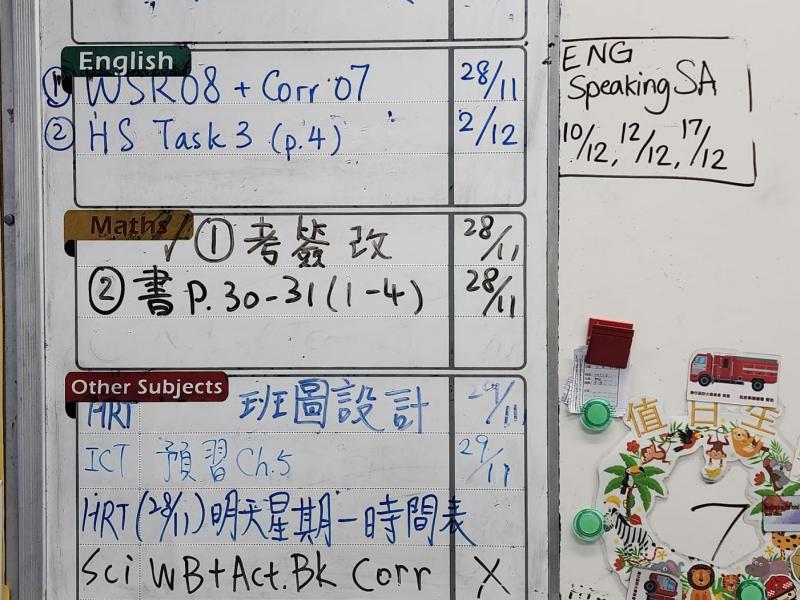 English
① WSR08 + Corr 07 28/11
② HS Task 3 (p.4) 2/12
Maths
✓ ① 考簽改 28/11
② 書 P. 30-31 (1-4) 28/11
Other Subjects
HRT 班圖設計 29/11
ICT 預習 Ch.5 29/11
HRT (28/11) 明天星期一時間表
Sci WB + Act. Bk Corr X
ENG
Speaking SA
10/12, 12/12, 17/12
值日生
7